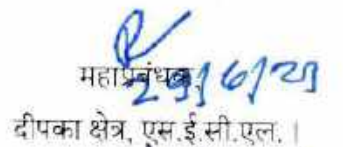 महाप्रबंधक
दीपका क्षेत्र, एस.ई.सी.एल. ।